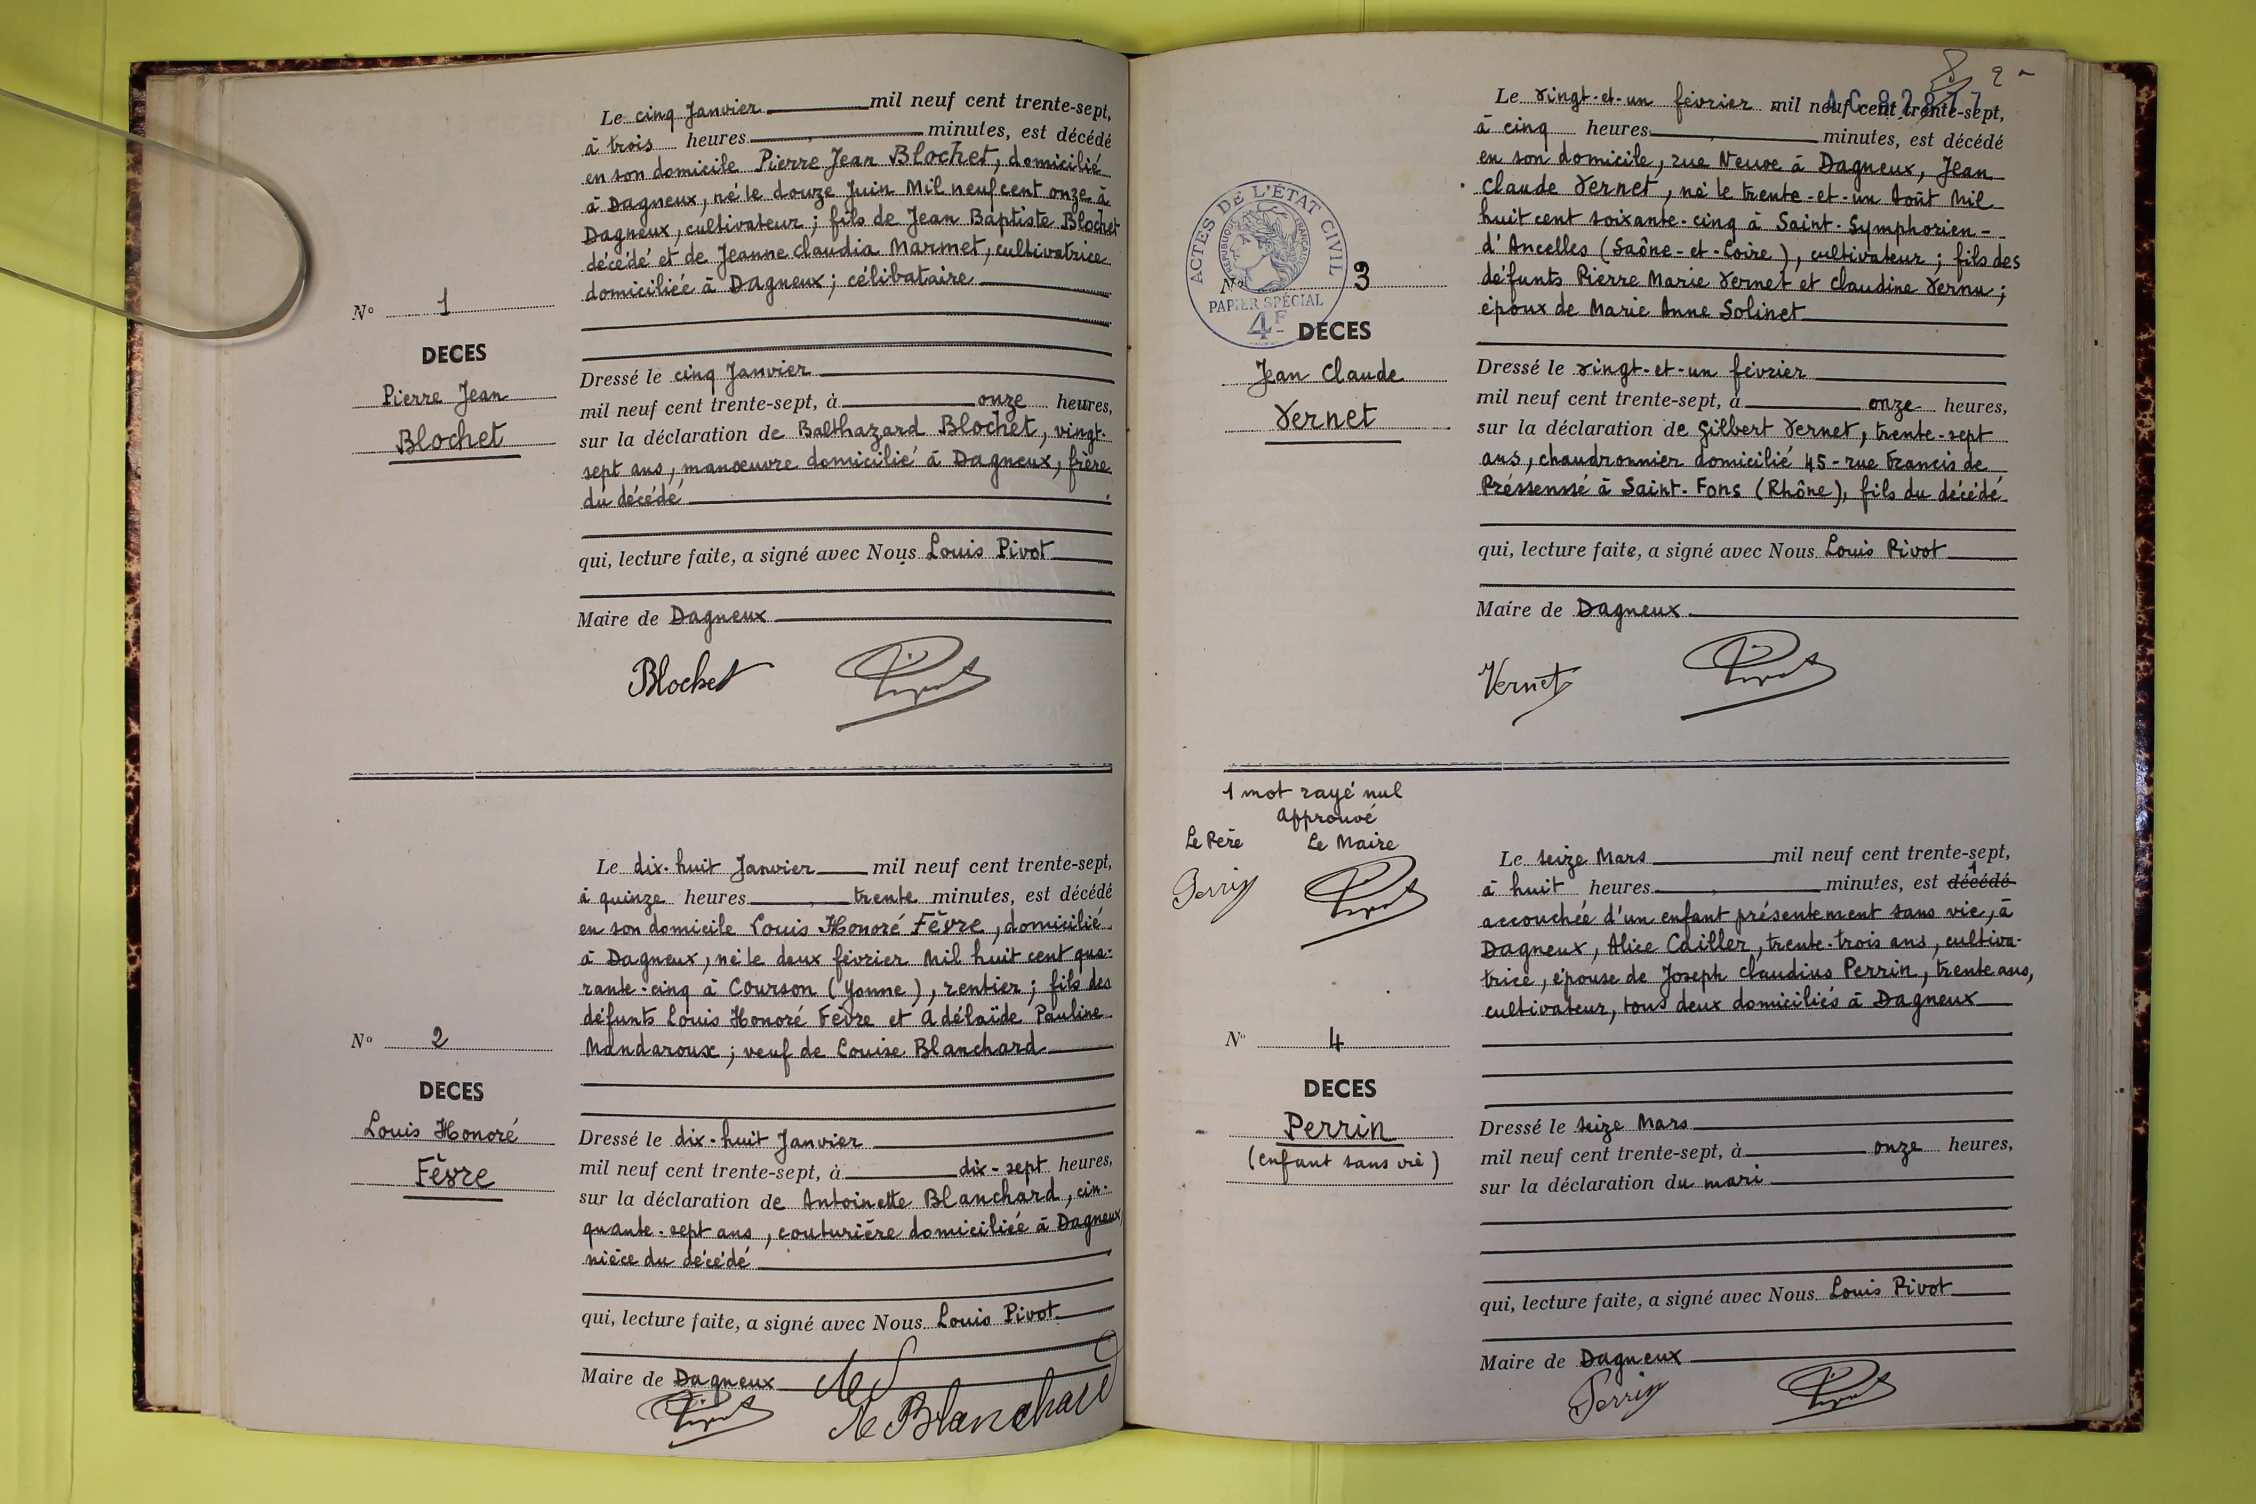 Le cinq Janvier mil neuf cent trente-sept,
à trois heures minutes, est décédé
en son domicile Pierre Jean Blochet, domicilié
à Dagneux, né le douze Juin Mil neuf cent onze à
Dagneux, cultivateur ; fils de Jean Baptiste Blochet
décédé et de Jeanne Claudia Marmet, cultivatrice
domiciliée à Dagneux ; célibataire
No 1
DECES
Pierre Jean
Blochet
Dressé le cinq Janvier
mil neuf cent trente-sept, à onze heures,
sur la déclaration de Balthazard Blochet, vingt-
sept ans, manœuvre domicilié à Dagneux, frère
du décédé
qui, lecture faite, a signé avec Nous Louis Pivot
Maire de Dagneux
Blochet Pivot
Le dix-huit Janvier mil neuf cent trente-sept,
à quinze heures trente minutes, est décédé
en son domicile Louis Honoré Fèvre, domicilié
à Dagneux, né le deux février Mil huit cent qua-
rante-cinq à Courson (Yonne), rentier ; fils des
défunts Louis Honoré Fèvre et Adélaïde Pauline
Mandaroux ; veuf de Louise Blanchard
No 2
DECES
Louis Honoré
Fèvre
Dressé le dix-huit Janvier
mil neuf cent trente-sept, à dix-sept heures,
sur la déclaration de Antoinette Blanchard, cin-
quante-sept ans, couturière domiciliée à Dagneux
nièce du décédé
qui, lecture faite, a signé avec Nous Louis Pivot
Maire de Dagneux
Pivot Blanchard
2
Le vingt-et-un février mil neuf cent trente-sept,
à cinq heures minutes, est décédé
en son domicile, rue Neuve à Dagneux, Jean
Claude Vernet, né le trente-et-un Août Mil
huit cent soixante-cinq à Saint-Symphorien-
d'Ancelles (Saône-et-Loire), cultivateur ; fils des
défunts Pierre Marie Vernet et Claudine Vernu ;
époux de Marie Anne Solinet
ACTES DE L'ÉTAT CIVIL
RÉPUBLIQUE FRANÇAISE
PAPIER SPÉCIAL
4F
No 3
DECES
Jean Claude
Vernet
Dressé le vingt-et-un février
mil neuf cent trente-sept, à onze heures,
sur la déclaration de Gilbert Vernet, trente-sept
ans, chaudronnier domicilié 45-rue Francis de
Préssenssé à Saint-Fons (Rhône), fils du décédé
qui, lecture faite, a signé avec Nous Louis Pivot
Maire de Dagneux
Vernet Pivot
1 mot rayé nul
Approuvé
Le Père Le Maire
Perrin Pivot
Le seize Mars mil neuf cent trente-sept,
à huit heures minutes, est décédé
accouchée d'un enfant présentement sans vie, à
Dagneux, Alice Cailler, trente-trois ans, cultiva-
trice, épouse de Joseph Claudius Perrin, trente ans,
cultivateur, tous deux domiciliés à Dagneux
No 4
DECES
Perrin
(enfant sans vie)
Dressé le seize Mars
mil neuf cent trente-sept, à onze heures,
sur la déclaration du mari
qui, lecture faite, a signé avec Nous Louis Pivot
Maire de Dagneux
Perrin Pivot